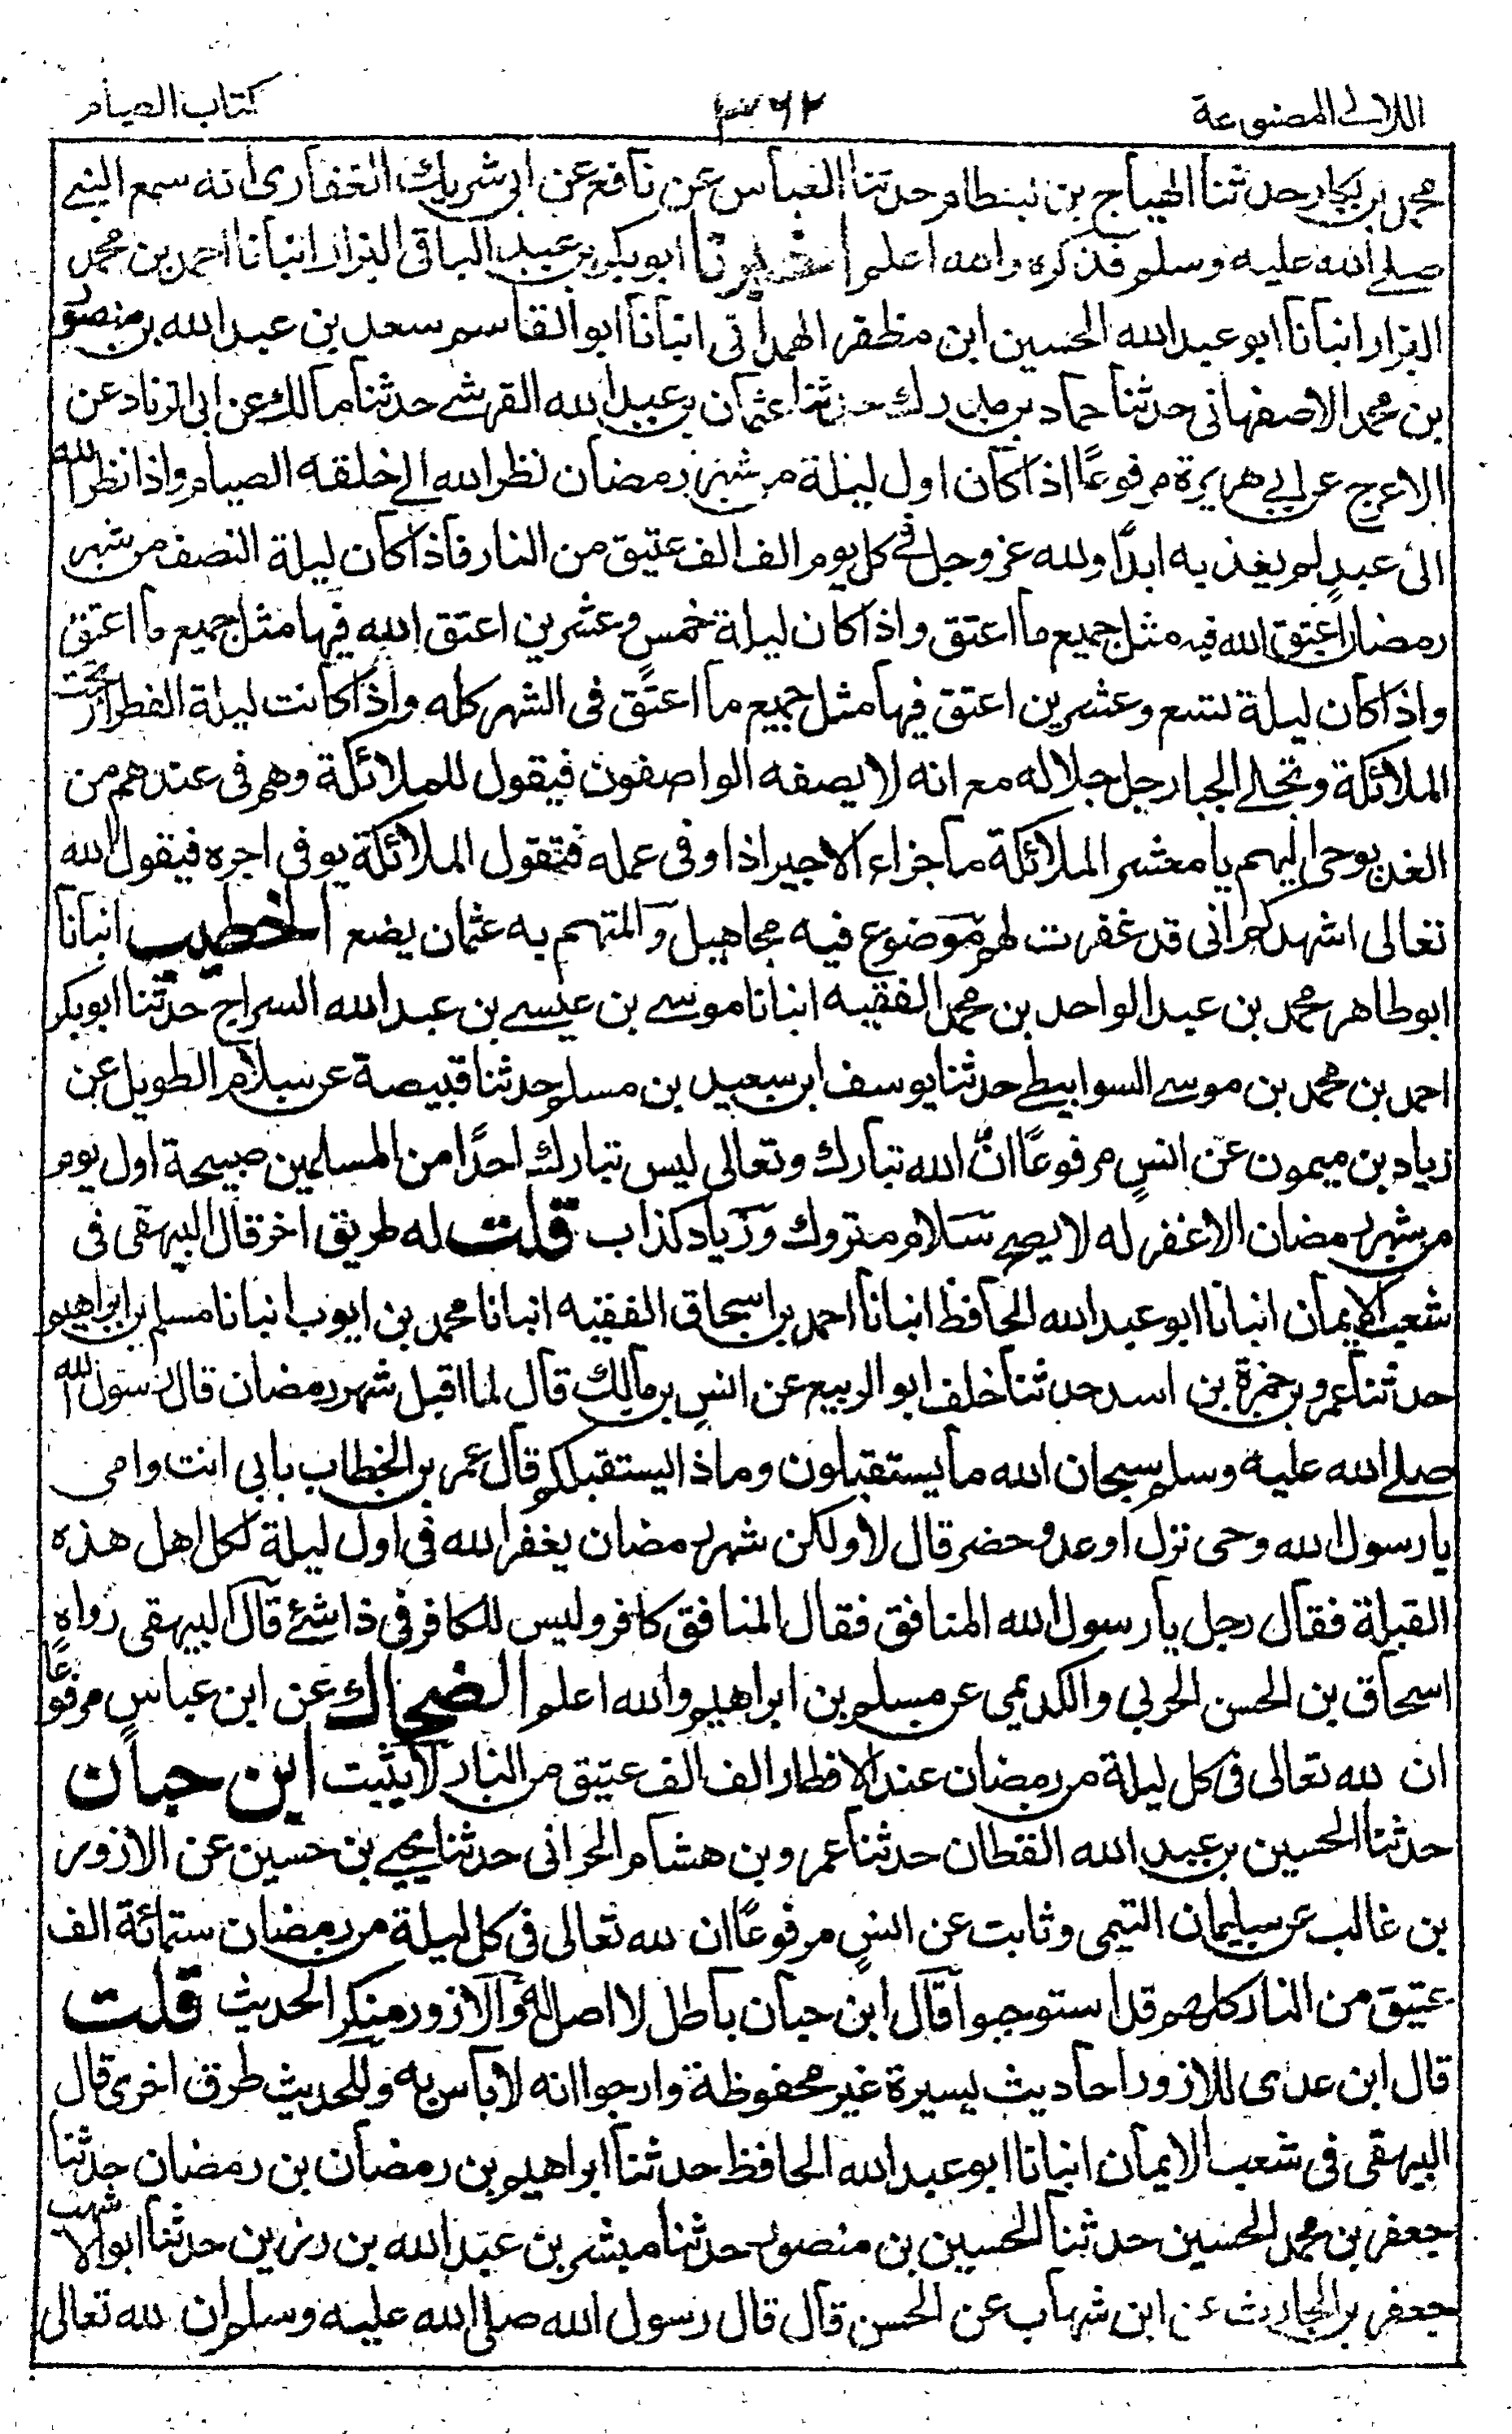 اللآلی المصنوعة ۳۶۲ کتاب الصیام
محمد بن بکار حدثنا الهیاج بن بسطام حدثنا العباس عن نافع عن ابی شریک الغفاری انه سمع النبی
صلے الله علیه وسلم فذکره والله اعلم اخبرنا ابوبکر بن عبد الباقی البزار انبأنا احمد بن محمد
البزار انبأنا ابو عبد الله الحسین ابن مظفر الهمدانی انبأنا ابو القاسم سعد بن عبد الله بن منصور
بن محمد الاصفهانی حدثنا حماد بن مدرك حدثنا عثمان بن عبد الله القرشے حدثنا مالك عن ابی الزناد عن
الاعرج عن ابی هریرة مرفوعًا اذا کان اول لیلة من شهر رمضان نظر الله الی خلقه الصیام واذا نظر الله
الی عبدٍ لم یعذبه ابدًا ولله عز وجل فی کل یوم الف الف عتیق من النار فاذا کان لیلة النصف من شهر
رمضان اعتق الله فیه مثل جمیع ما اعتق واذا کان لیلة خمسٍ وعشرین اعتق الله فیها مثل جمیع ما اعتق
واذا کان لیلة تسع وعشرین اعتق فیها مثل جمیع ما اعتق فی الشهر کله واذا کانت لیلة الفطر ارتجت
الملائکة وتجلے الجبار جل جلاله مع انه لا یصفه الواصفون فیقول للملائکة وهم فی عندهم من
الغد یوحی الیهم یا معشر الملائکة ما جزاء الاجیر اذا وفی عمله فتقول الملائکة یوفی اجره فیقول الله
تعالی اشهدکم انی قد غفرت لهم موضوع فیه مجاهیل والمتهم به عثمان یضع الخطیب انبأنا
ابو طاهر محمد بن عبد الواحد بن محمد الفقیه انبانا موسے بن عیسے بن عبد الله السراج حدثنا ابو بکر
احمد بن محمد بن موسے السوابیطے حدثنا یوسف ابن سعید بن مسلم حدثنا قبیصة عن سلام الطویل عن
زیاد بن میمون عن انسٍ مرفوعًا انّ الله تبارك وتعالی لیس بتارك احدًا من المسلمین صبیحة اول یوم
من شهر رمضان الا غفر له لا یصح سلام متروك وزیاد کذاب قلت له طریق اخر قال البیهقی فی
شعب الایمان انبانا ابو عبد الله الحافظ انبانا احمد بن اسحاق الفقیه انبانا محمد بن ایوب انبانا مسلم بن ابراهیم
حدثنا عمرو بن حمزة بن اسد حدثنا خلف ابو الربیع عن انس بن مالك قال لما اقبل شهر رمضان قال رسول الله
صلے الله علیه وسلم سبحان الله ما یستقبلون وماذا یستقبلکم قال عمر بن الخطاب بابی انت وامی
یا رسول الله وحی نزل او عدو حضر قال لا ولکن شهر رمضان یغفر الله فی اول لیلة لکل اهل هذه
القبلة فقال رجل یا رسول الله المنافق فقال المنافق کافر ولیس للکافر فی ذا شئ قال البیهقی رواه
اسحاق بن الحسن الحربی والکدیمی عن مسلم بن ابراهیم والله اعلم الضحاك عن ابن عباس مرفوعًا
ان لله تعالی فی کل لیلة من رمضان عند الافطار الف الف عتیق من النار لا یثبت ابن حبان
حدثنا الحسین بن عبد الله القطان حدثنا عمرو بن هشام الحرانی حدثنا یحیے بن حسین عن الازور
بن غالب عن سلیمان التیمی وثابت عن انسٍ مرفوعًا ان لله تعالی فی کل لیلة من رمضان ستمائة الف
عتیق من النار کلهم قد استوجبوا قال ابن حبان باطل لا اصل له والازور منکر الحدیث قلت
قال ابن عدی للازور احادیث یسیرة غیر محفوظة وارجوا انه لا باس به وللحدیث طرق اخری قال
البیهقی فی شعب الایمان انبانا ابو عبد الله الحافظ حدثنا ابراهیم بن رمضان بن رمضان حدثنا
جعفر بن محمد الحسین حدثنا الحسین بن منصور حدثنا مبشر بن عبد الله بن رزین حدثنا ابو الاشهب
جعفر بن الحارث عن ابن شهاب عن الحسن قال قال رسول الله صلی الله علیه وسلم ان لله تعالی